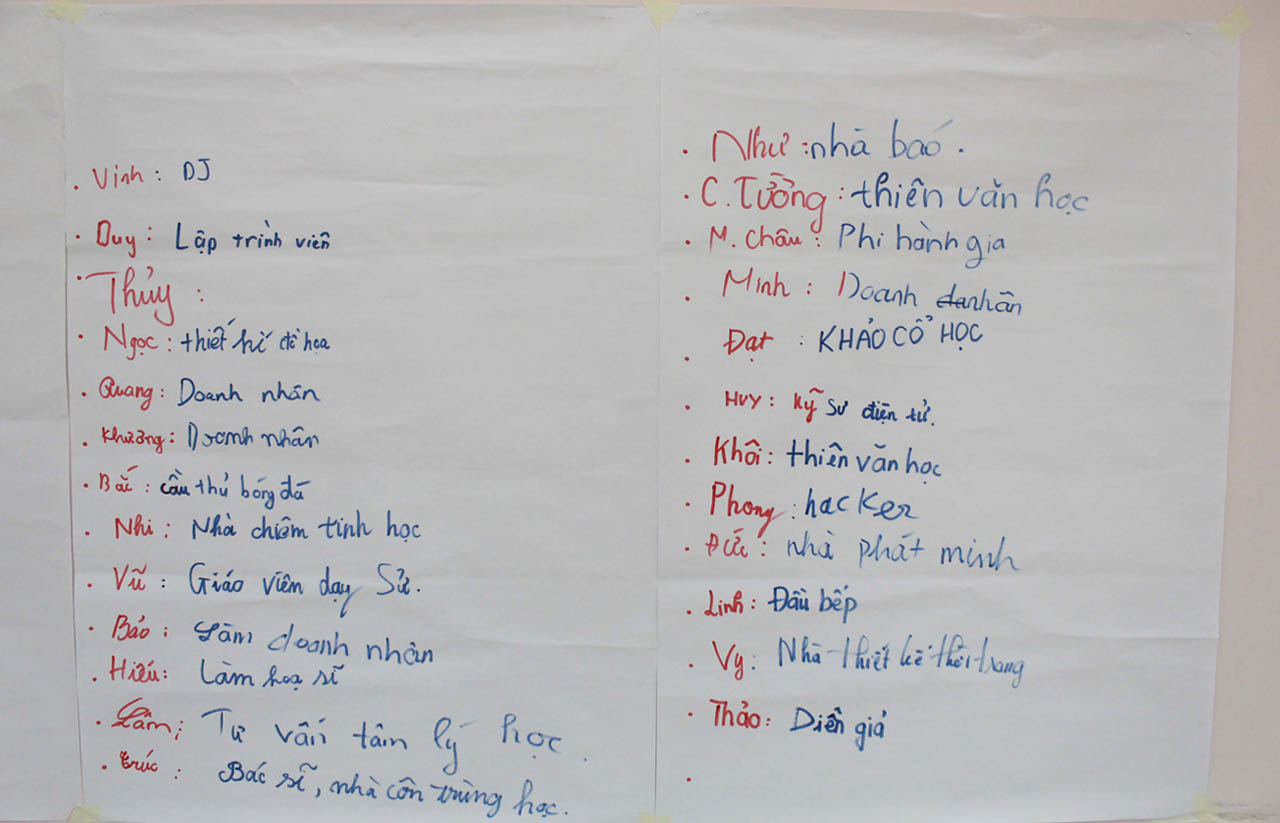 . Vinh : DJ
. Duy : Lập trình viên
. Thủy :
. Ngọc : thiết kế đồ họa
. Quang : Doanh nhân
. Khương : Doanh nhân
. Bắc : cầu thủ bóng đá
. Nhi : Nhà chiêm tinh học
. Vũ : Giáo viên dạy Sử.
. Bảo : Làm doanh nhân
. Hiếu : Làm hoạ sĩ
. Lâm ; Tư vấn tâm lý học.
. Trúc : Bác sĩ, nhà côn trùng học.
. Như : nhà báo.
. C. Tường : thiên văn học
. M. Châu : Phi hành gia
. Minh : Doanh nhân
. Đạt : KHẢO CỔ HỌC
. HUY : Kỹ sư điện tử.
. Khôi : thiên văn học
. Phong : hacker
. Đức : nhà phát minh
. Linh : Đầu bếp
. Vy : Nhà thiết kế thời trang
. Thảo : Diễn giả
.